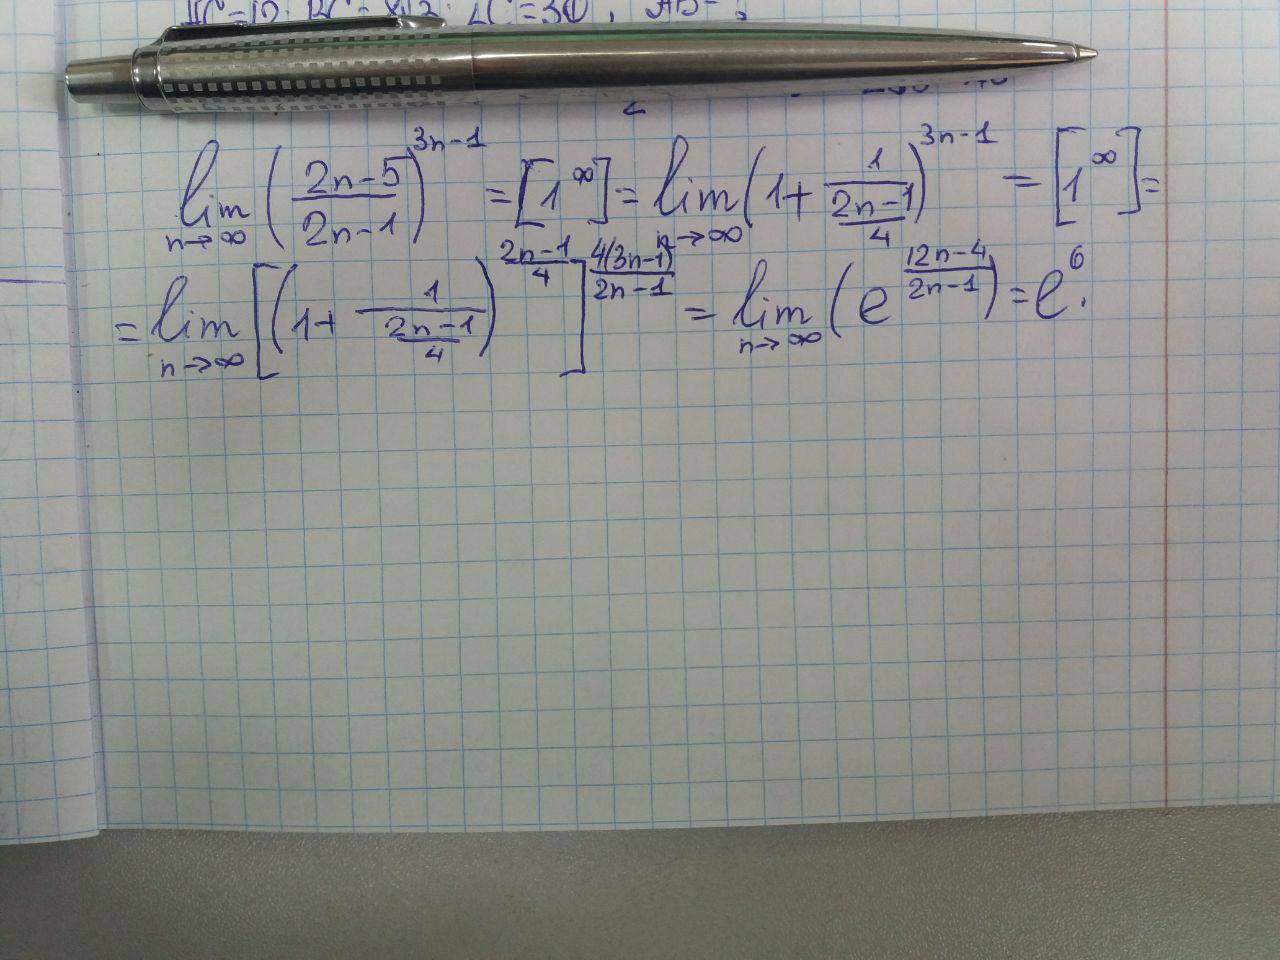 lim n→∞ ((2n-5)/(2n-1))^(3n-1) = [1^∞] = lim n→∞ (1+1/((2n-1)/4))^(3n-1) = [1^∞] =
= lim n→∞ [(1+1/((2n-1)/4))^((2n-1)/4)]^(4(3n-1)/(2n-1)) = lim n→∞ (e^((12n-4)/(2n-1))) = e^6.